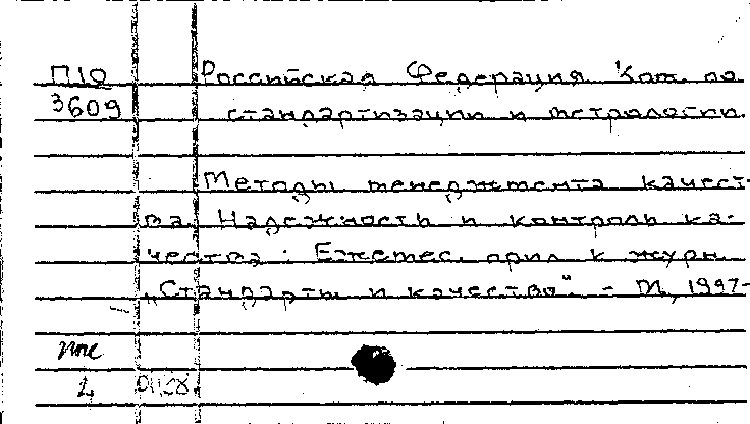 П10 Российская Федерация. Ком. по
3609 стандартизации и метрологии.
Методы менеджмента качест-
ва. Надежность и контроль ка-
чества : Ежемес. прил. к журн.
„Стандарты и качество". - М., 1997-
1